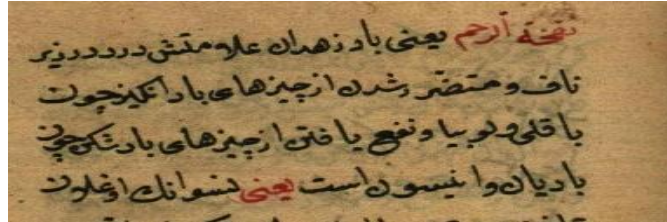 نفخة الرحم یعنی باد زهدان علامتش درد در زیر
ناف و متضرر شدن از چیزهای باد انکیز چون
باقلی و لوبیا و نفع یافتن از چیزهای باد شکن چون
بادیان و انیسون است یعنی نسوانک اوغلون